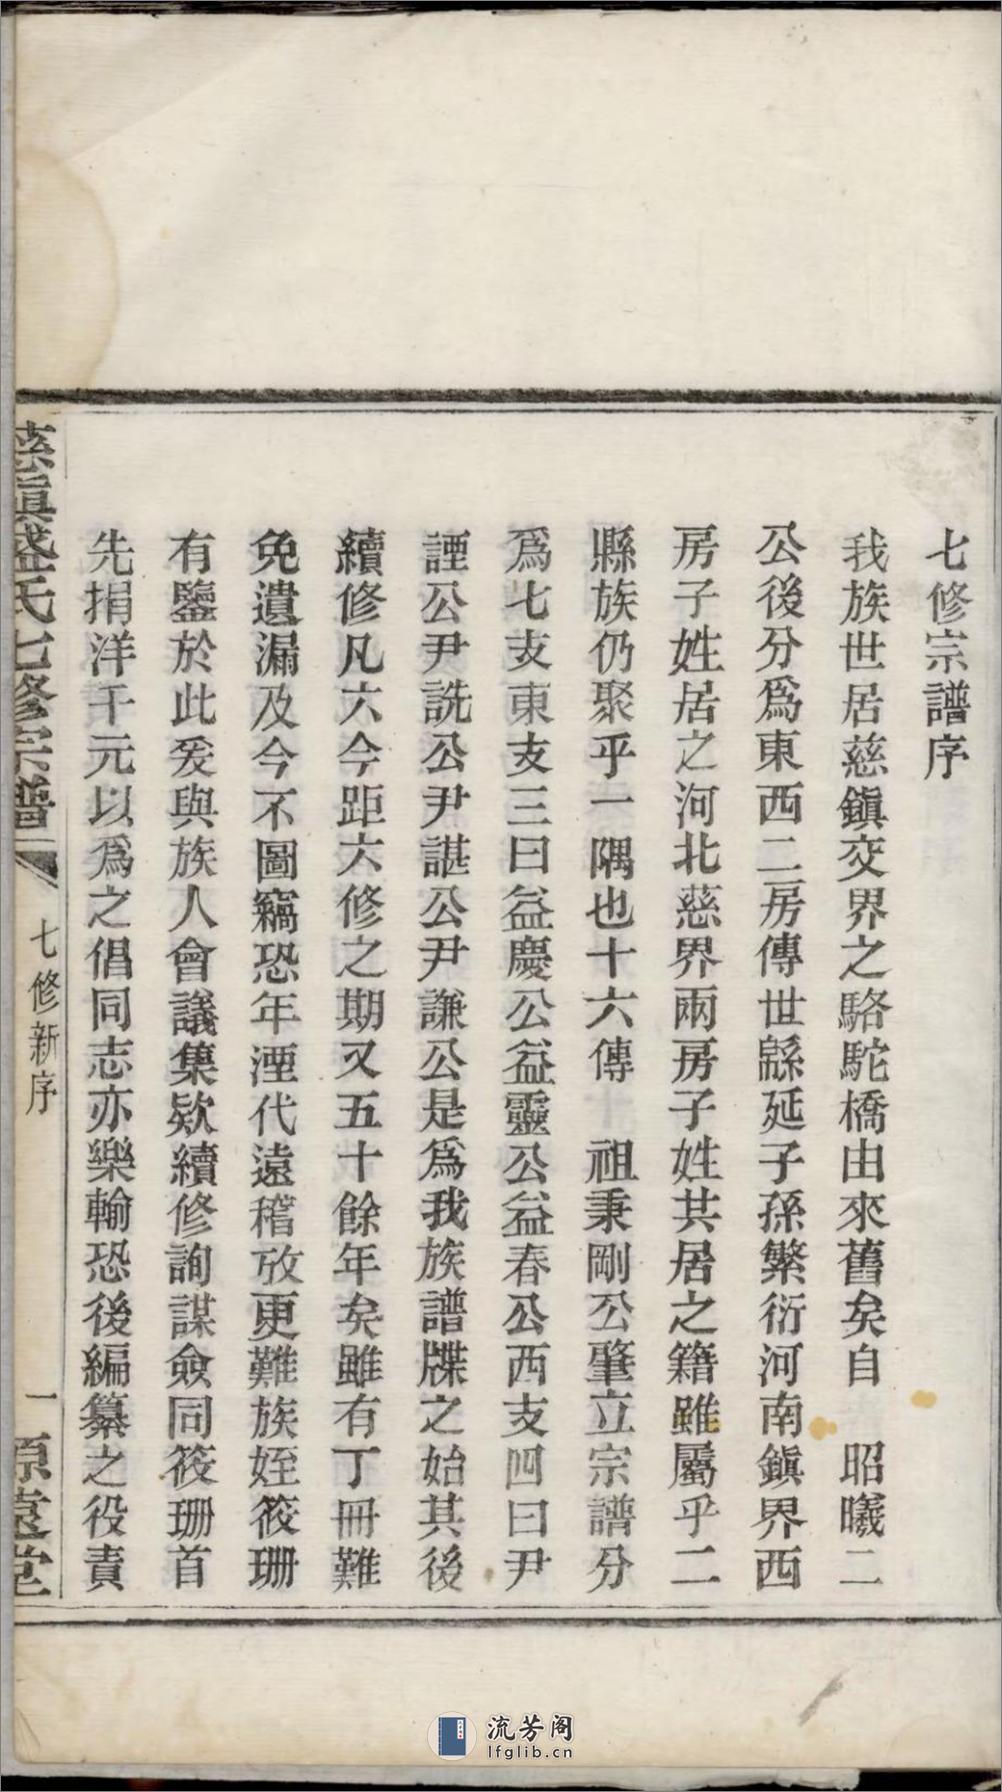 七修宗譜序
我族世居慈鎭交界之駱駝橋由來舊矣自　昭曦二
公後分爲東西二房傳世緜延子孫繁衍河南鎭界西
房子姓居之河北慈界兩房子姓共居之籍雖屬乎二
縣族仍聚乎一隅也十六傳　祖秉剛公肇立宗譜分
爲七支東支三曰益慶公益靈公益春公西支四曰尹
諲公尹詵公尹諶公尹謙公是爲我族譜牒之始其後
續修凡六今距六修之期又五十餘年矣雖有丁冊難
免遺漏及今不圖竊恐年湮代遠稽攷更難族姪筱珊
有鑒於此爰與族人會議集欵續修詢謀僉同筱珊首
先捐洋千元以爲之倡同志亦樂輸恐後編纂之役責
慈鎭盛氏七修宗譜
七修新序
一
原遠堂
流芳阁
lfglib.cn